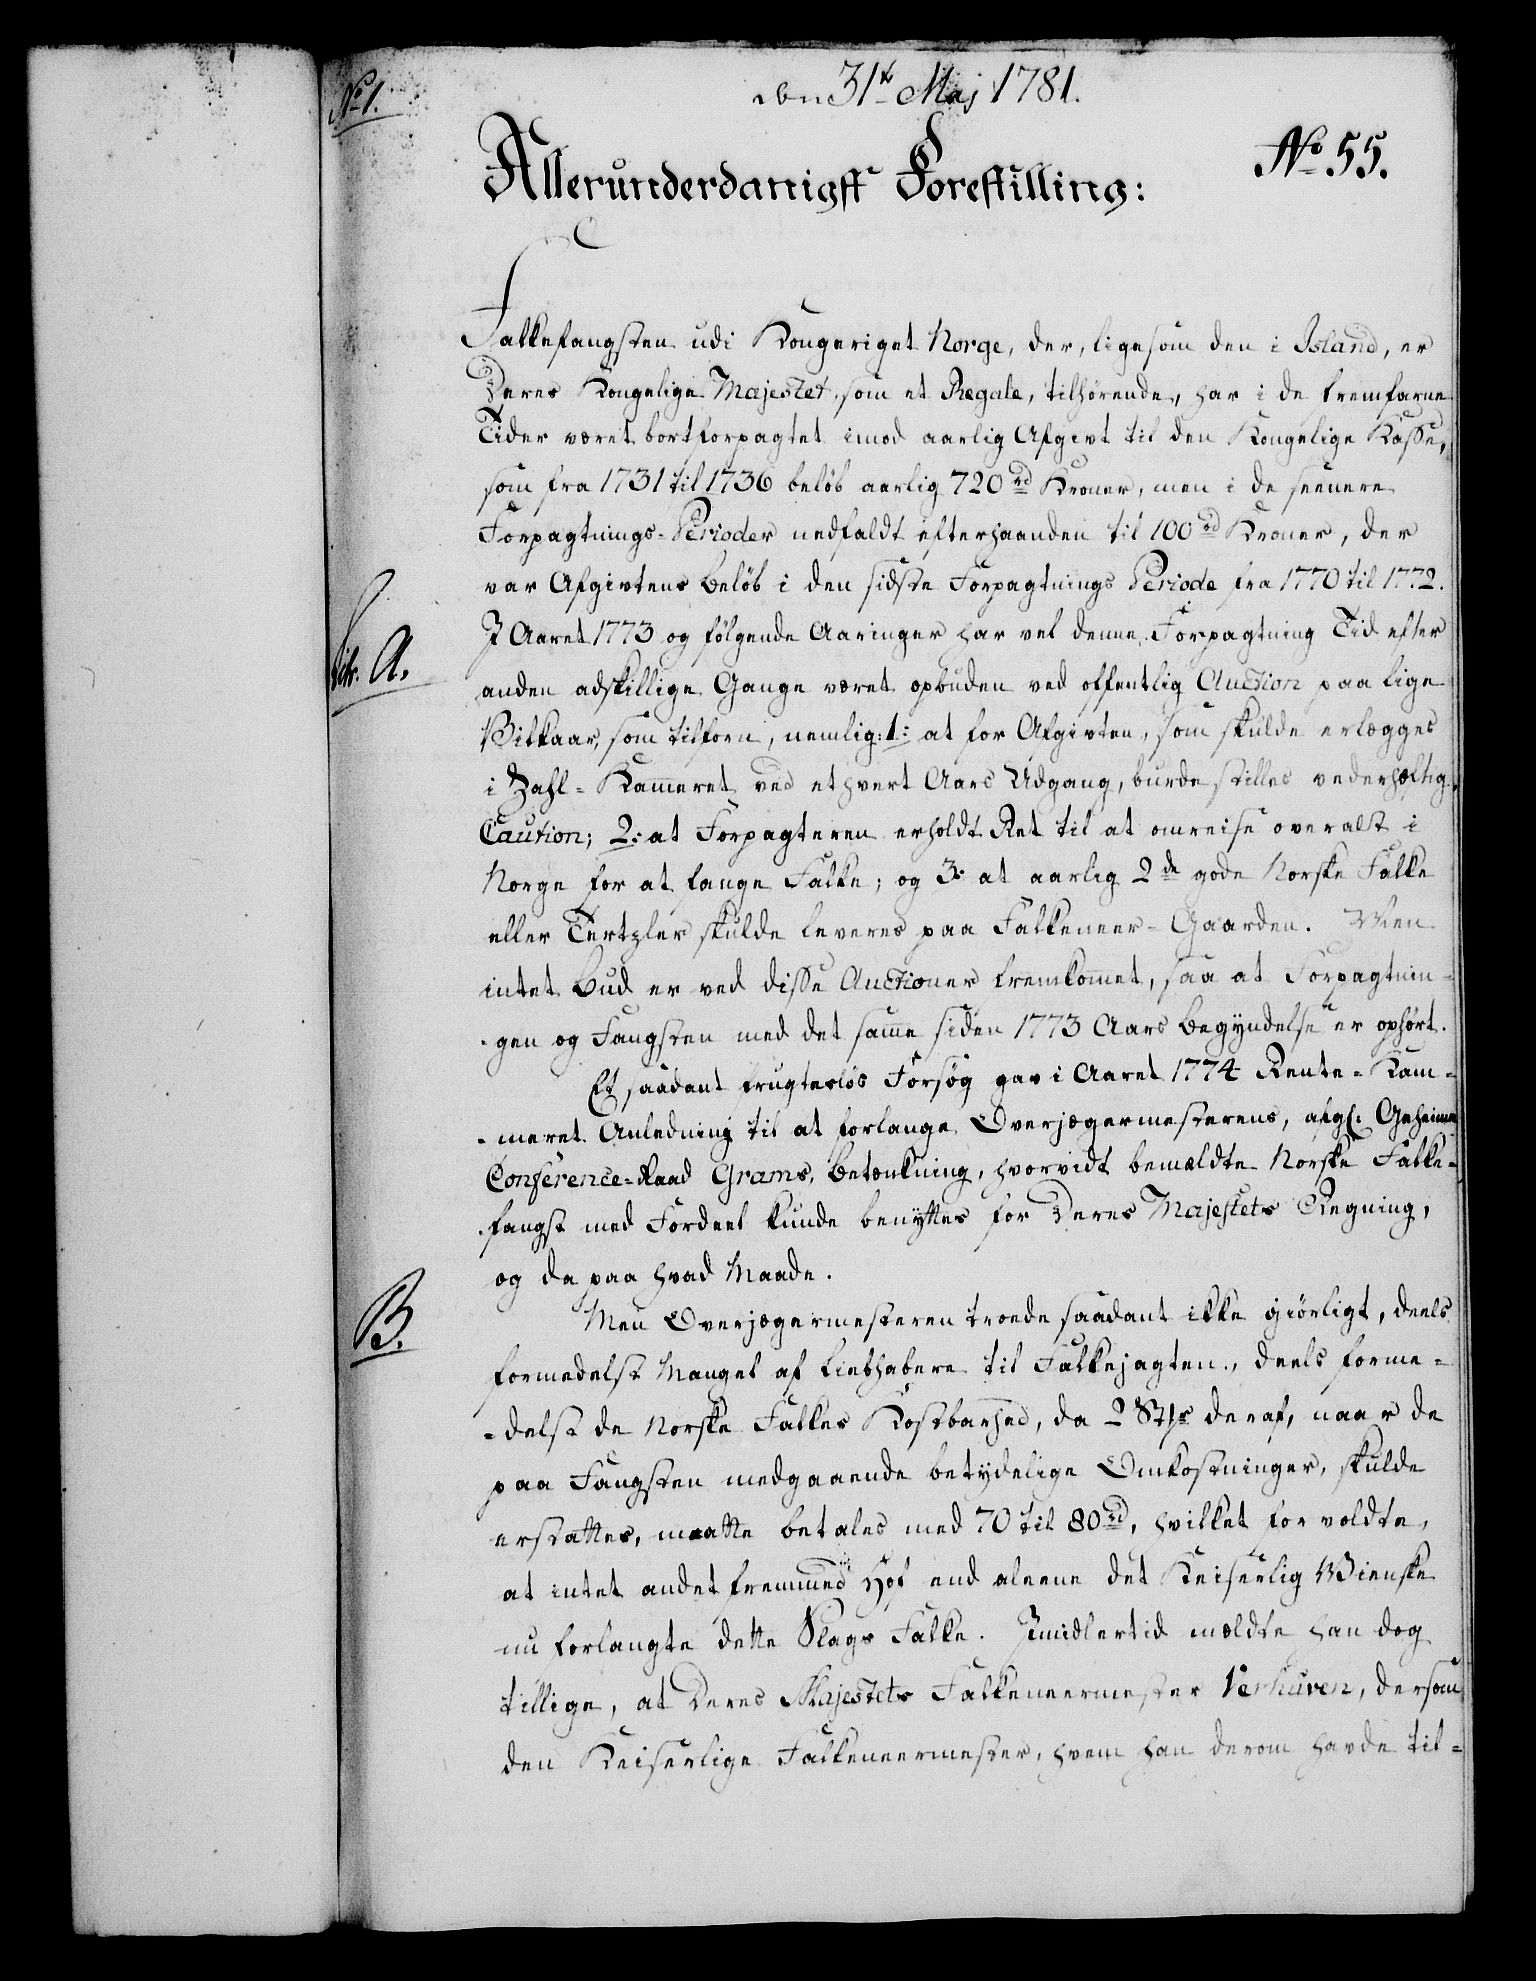 No 1.
den 31te Maj 1781.
No. 55.
Allerunderdanigst Forestilling:
Falkefangsten udi Kongeriget Norge, der, ligesom den i Island, er
Deres Kongelige Majestet, som et Regale, tilhørende, har i de fremfarne
Tider været bortforpagtet imod aarlig Afgivt til den Kongelige Kasse,
som fra 1731 til 1736 beløb aarlig 720 rd Kroner, men i de seenere
Forpagtnings-Perioder nedfaldt efterhaanden til 100 rd Kroner, der
var Afgivtens beløb i den sidste Forpagtnings Periode fra 1770 til 1772.
Litr. A.
I Aaret 1773 og følgende Aaringer har vel denne Forpagtning Tid efter
anden adskillige Gange været opbuden ved offentlig Auction paa lige
Vilkaar, som tilforn, nemlig: 1: at for Afgivten, som skulde erlægges
i Zahl-Kammeret ved ethvert Aars Udgang, burde stilles vederhæftig
Caution; 2: at Forpagteren erholdt Ret til at omreise overalt i
Norge for at fange Falke; og 3: at aarlig 2de gode Norske Falke
eller Tertzler skulde leveres paa Falkeneer-Gaarden. Men
intet Bud er ved disse Auctioner fremkommet, saa at Forpagtnin-
-gen og Fangsten med det samme siden 1773 Aars Begyndelse er ophørt.
Et saadant frugtesløs Forsøg gav i Aaret 1774 Rente-Kam-
-meret Anledning til at forlange Overjægermesterens, afgl: Geheime
Conference-Raad Grams, Betænkning, hvorvidt bemældte Norske Falke-
-fangst med Fordeel kunde benyttes for Deres Majestets Regning,
og da paa hvad Maade.
B.
Men Overjægermesteren troede saadant ikke giørligt, deels
formedelst Mangel af Liebhabere til Falkejagten, deels forme-
-delst de Norske Falkes Kostbarhed, da 2 Stk deraf, naar de
paa Fangsten medgaaende betydelige Omkostninger, skulde
erstattes, maatte betales med 70 til 80 rd, hvilket forvoldte,
at intet andet fremmed Hof end aleene det Keiserlig Wienske
nu forlangte dette Slags Falke. Imidlertid mældte han dog
tillige, at Deres Majestets Falkeneermester Verhuven, dersom
den Keiserlige Falkeneermester, hvem han derom havde til-